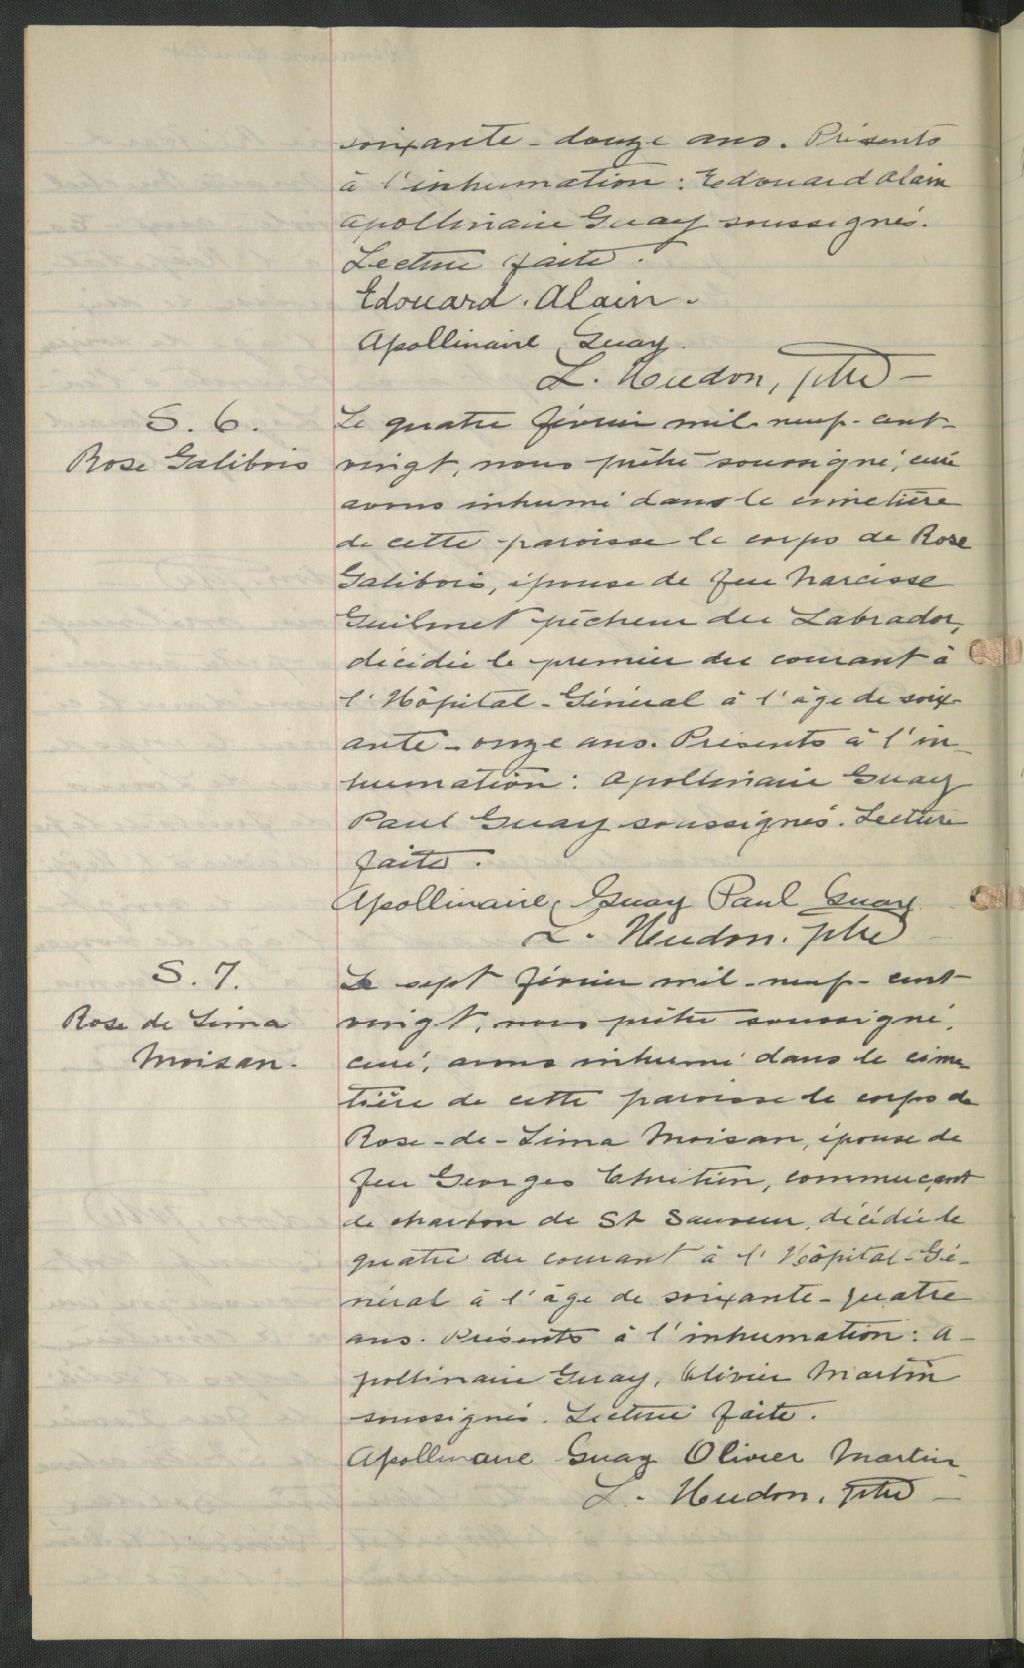 soixante-douze ans. Présents
à l'inhumation: Edouard Alain
Apollinaire Guay soussignés.
Lecture faite.
Edouard. Alain.
Apollinaire Guay.
L. Heudon, ptre
S. 6.
Rose Galibois
Le quatre février mil-neuf-cent-
vingt, nous prêtre soussigné, curé
avons inhumé dans le cimetière
de cette paroisse le corps de Rose
Galibois, épouse de feu Narcisse
Guilmet pêcheur du Labrador,
décédée le premier du courant à
l'Hôpital-Général à l'âge de soix-
ante-onze ans. Présents à l'in-
humation: Apollinaire Guay
Paul Guay soussignés. Lecture
faite.
Apollinaire Guay Paul Guay
L. Heudon. ptre
S. 7.
Rose de Lima
Moisan.
Le sept février mil-neuf-cent
vingt, nous prêtre soussigné,
curé, avons inhumé dans le cime
tière de cette paroisse le corps de
Rose-de-Lima Moisan, épouse de
feu Georges Chrétien, commerçant
de charbon de St Sauveur, décédée le
quatre du courant à l'Hôpital-Gé-
néral à l'âge de soixante-quatre
ans. Présents à l'inhumation: A-
pollinaire Guay, Olivier Martin
soussignés. Lecture faite.
Apollinaire Guay Olivier Martin
L. Heudon, ptre